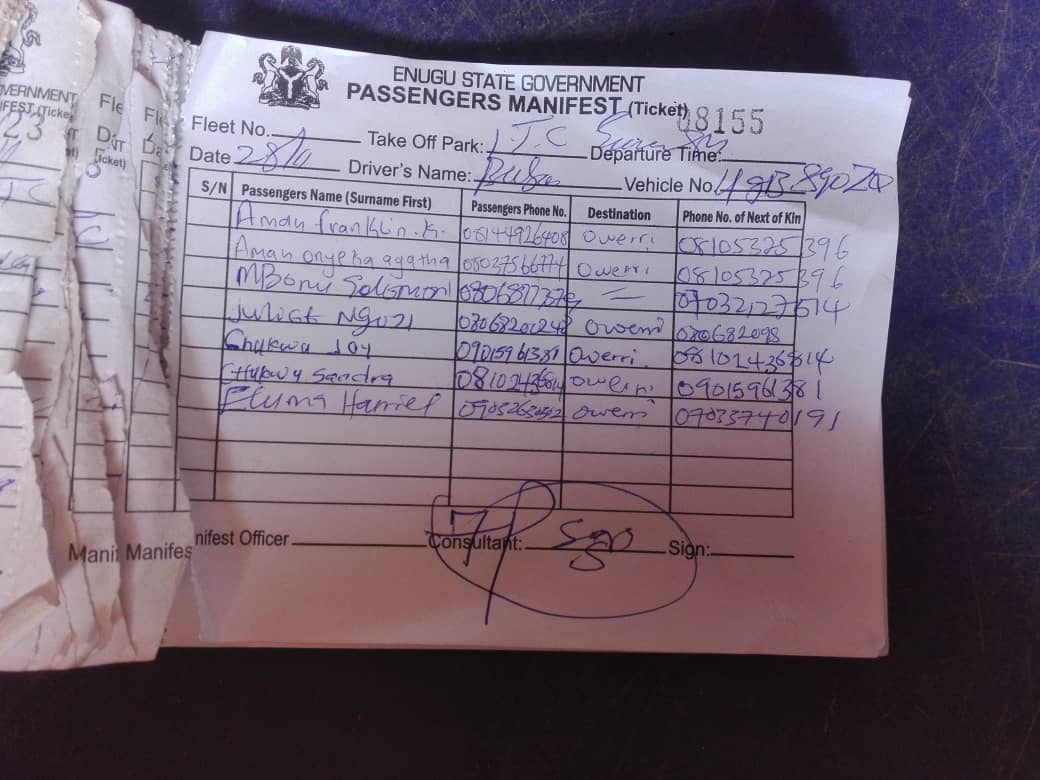 ENUGU STATE GOVERNMENT
PASSENGERS MANIFEST (Ticket) 08155
Fleet No. Take Off Park: I.T.C Departure Time:
Date 28/11 Driver's Name: Vehicle No.
S/N Passengers Name (Surname First) Passengers Phone No. Destination Phone No. of Next of Kin
Amau franklin. K. 08144926408 Owerri 08105325396
Amau onyeka agatha 08037566774 Owerri 08105325396
MBonu Solomon 07032127514
Juliet Ngozi Owerri 080682098
Chukwu Joy 09015961381 Owerri. 08102436814
Chukwu Sandra 08102436814 Owerri 09015961381
Eluma Harriet Owerri 07033740191
nifest Officer Consultant: Sign:
7P
Manifes
Mani
VERNMENT